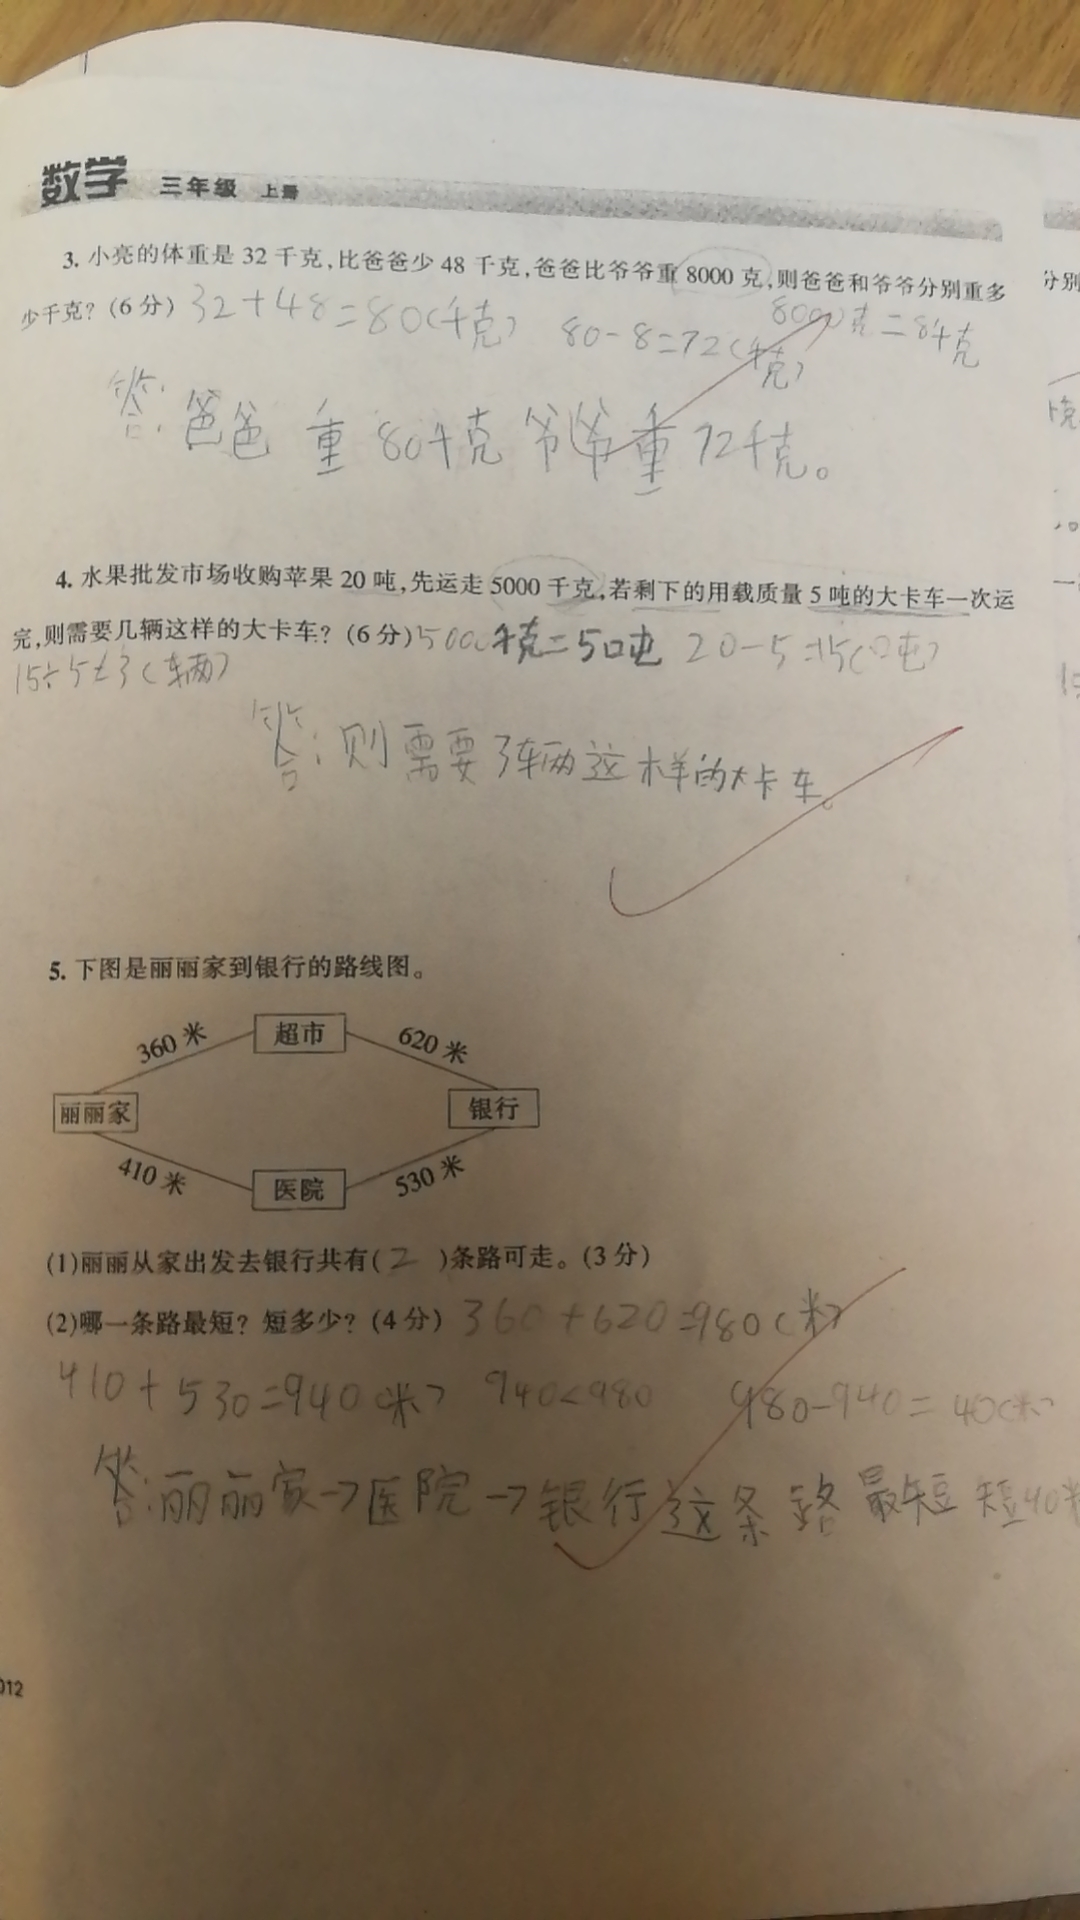 数学 三年级 上册
3. 小亮的体重是 32 千克,比爸爸少 48 千克,爸爸比爷爷重 8000 克,则爸爸和爷爷分别重多
少千克? (6 分) 32+48=80(千克) 80-8=72(千克) 8000克=8千克
答:爸爸重80千克爷爷重72千克。
4. 水果批发市场收购苹果 20 吨,先运走 5000 千克,若剩下的用载质量 5 吨的大卡车一次运
完,则需要几辆这样的大卡车? (6 分) 5000千克=5吨 20-5=15(吨)
15÷5=3(辆)
答:则需要3辆这样的大卡车。
5. 下图是丽丽家到银行的路线图。
360 米 超市 620 米
丽丽家 银行
410 米 医院 530 米
(1)丽丽从家出发去银行共有( 2 )条路可走。(3 分)
(2)哪一条路最短? 短多少? (4 分) 360+620=980(米)
410+530=940(米) 940<980 980-940=40(米)
答:丽丽家→医院→银行这条路最短 短40米
012
分别